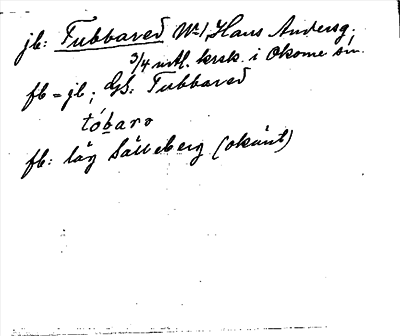 jb: Tubbared Nr 1, Hans Andersg.
3/4 mtl. krsk. i Okome sn.
fb = jb; Gs: Tubbared
tóbaro
fb: låg Sälleberg (okänt)